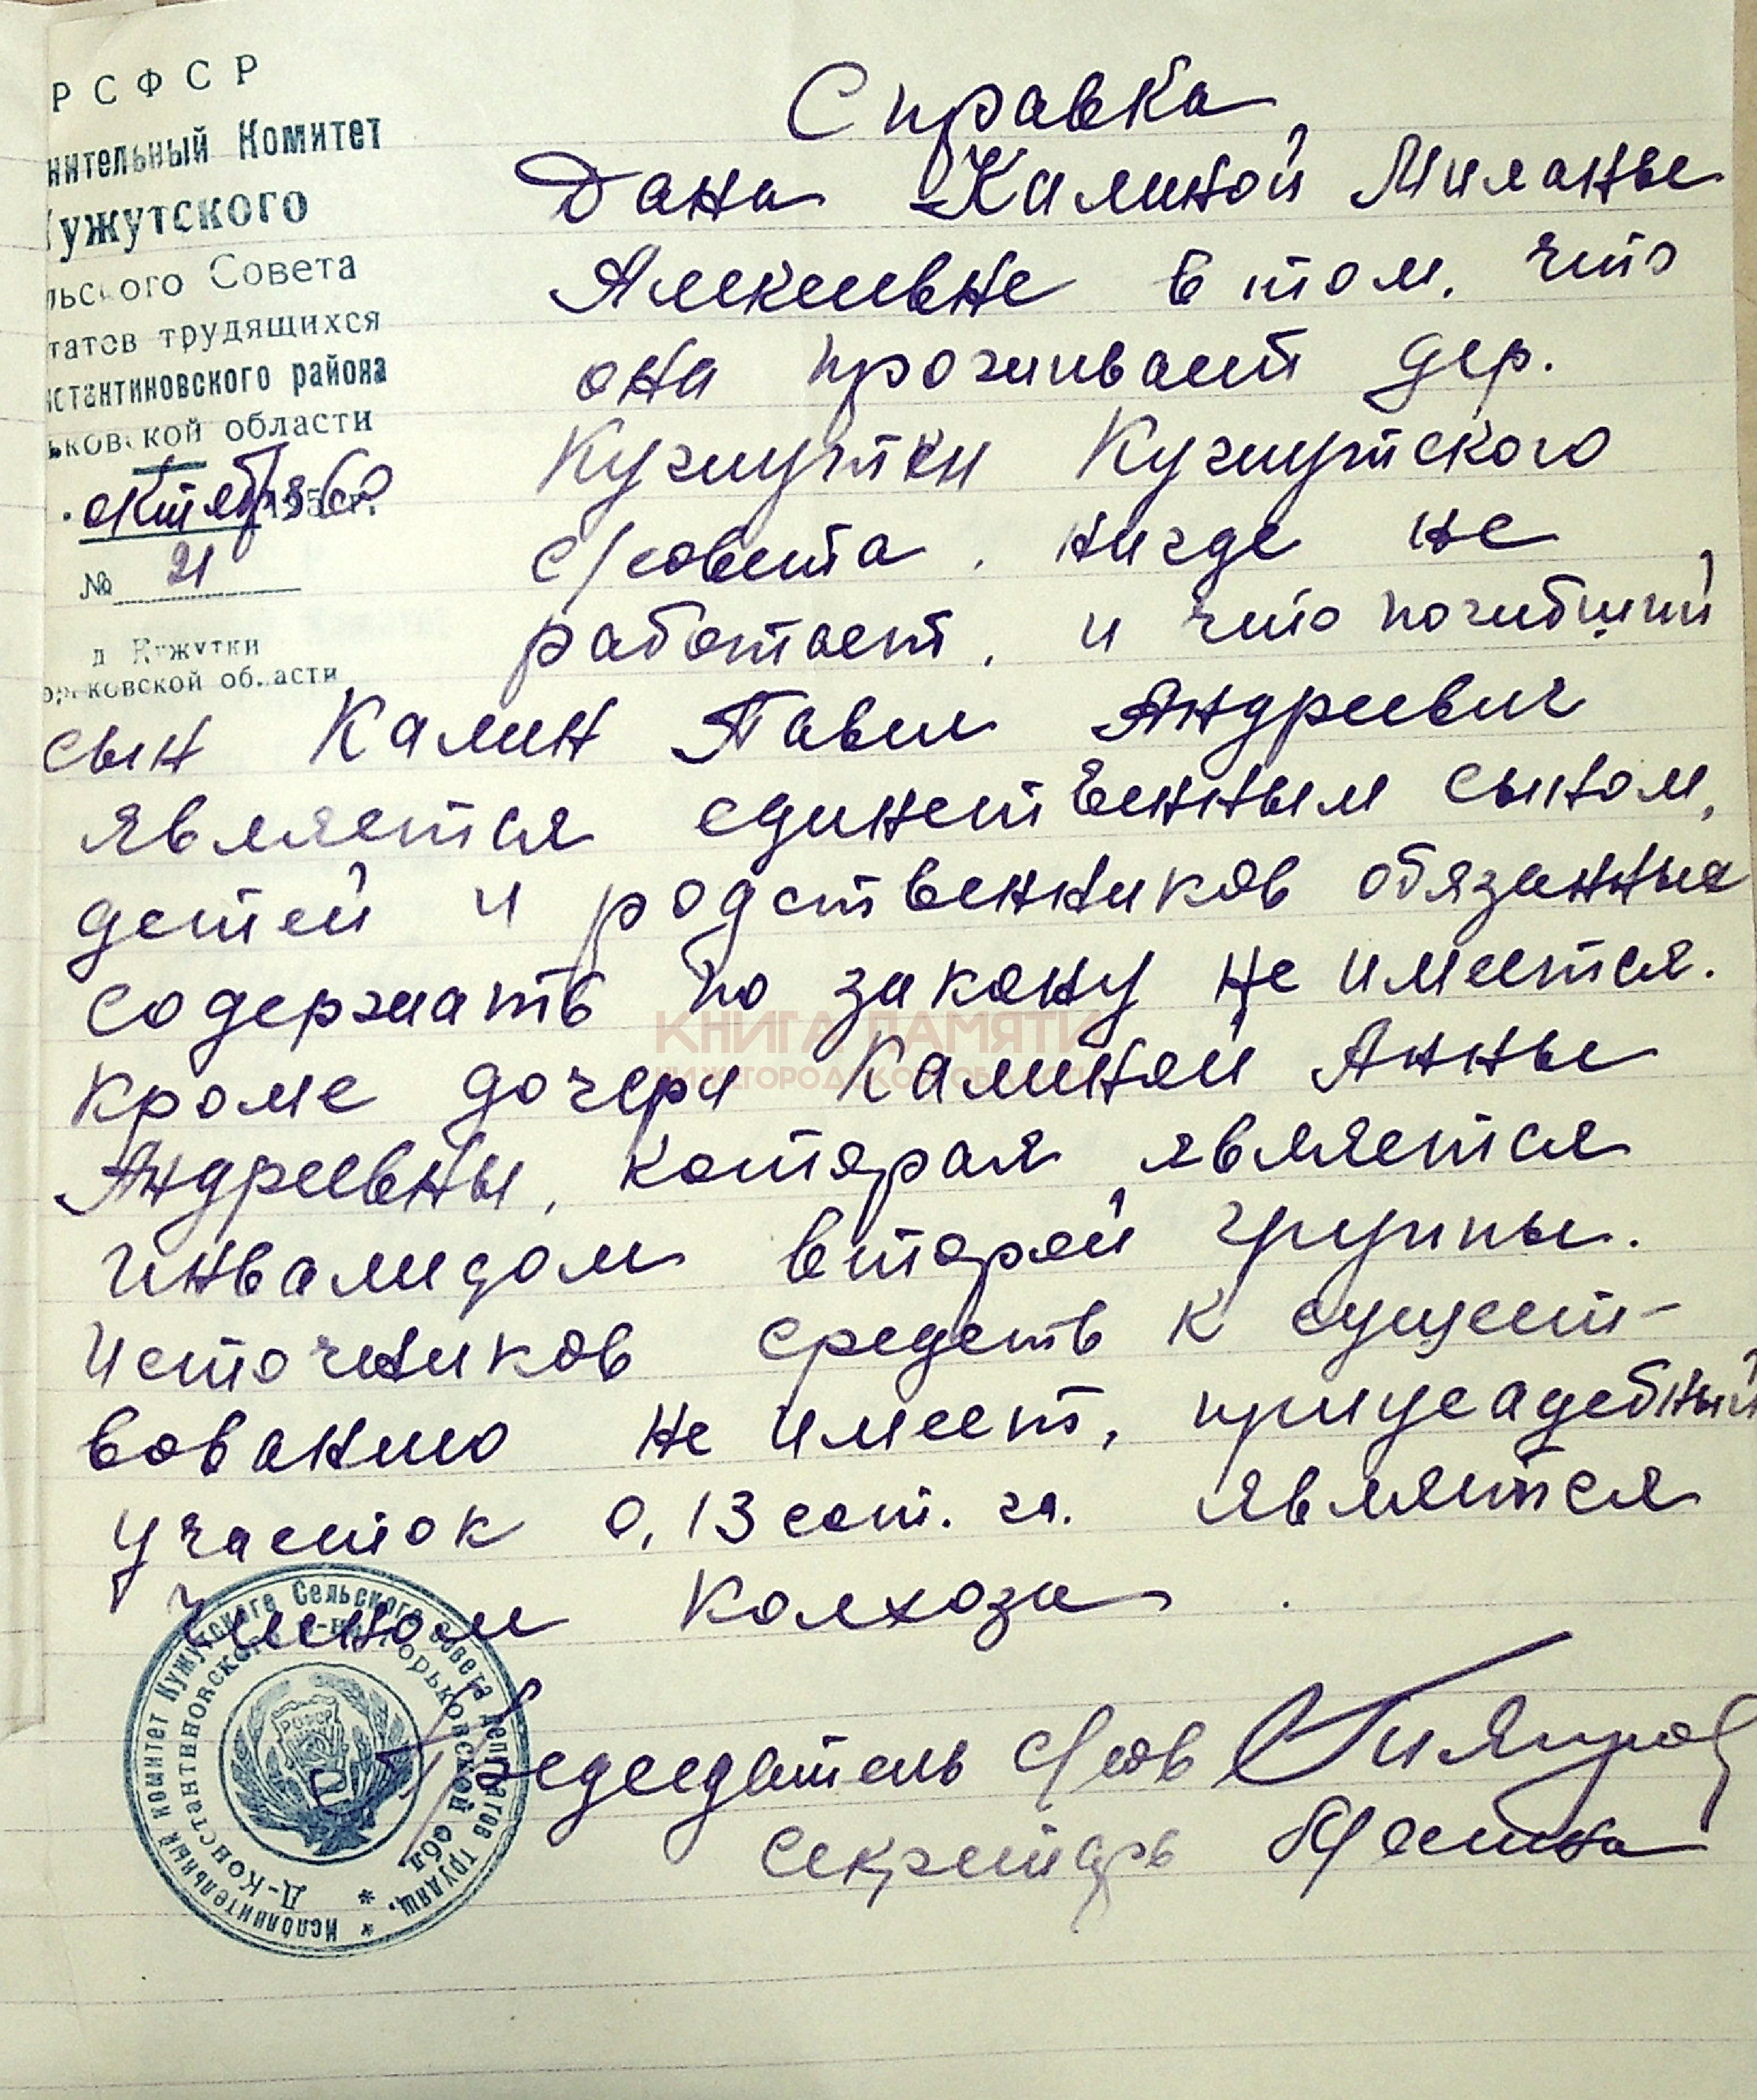 РСФСР
нительный Комитет
ужутского
льского Совета
татов трудящихся
нстантиновского района
ьковской области
октября 1960 г.
№ 21
д Кужутки
орьковской области
Справка
Дана Калиной Миланье
Алексеевне в том, что
она проживает дер.
Кужутки Кужутского
с/совета, нигде не
работает, и что погибший
сын Калин Павел Андреевич
является единственным сыном,
детей и родственников обязанные
содержать по закону не имеется.
кроме дочери Калиной Анны
Андреевны, которая является
инвалидом второй группы.
Источников средств к сущест-
вованию не имеет, приусадебный
участок 0,13 сот. га. является
членом колхоза
Председатель с/сов
секретарь
Исполнительный комитет Кужутского Сельского Совета депутатов трудящ.
Д-Константиновского р-на, Горьковской обл.
РСФСР
КНИГА ПАМЯТИ
НИЖЕГОРОДСКОЙ ОБЛАСТИ